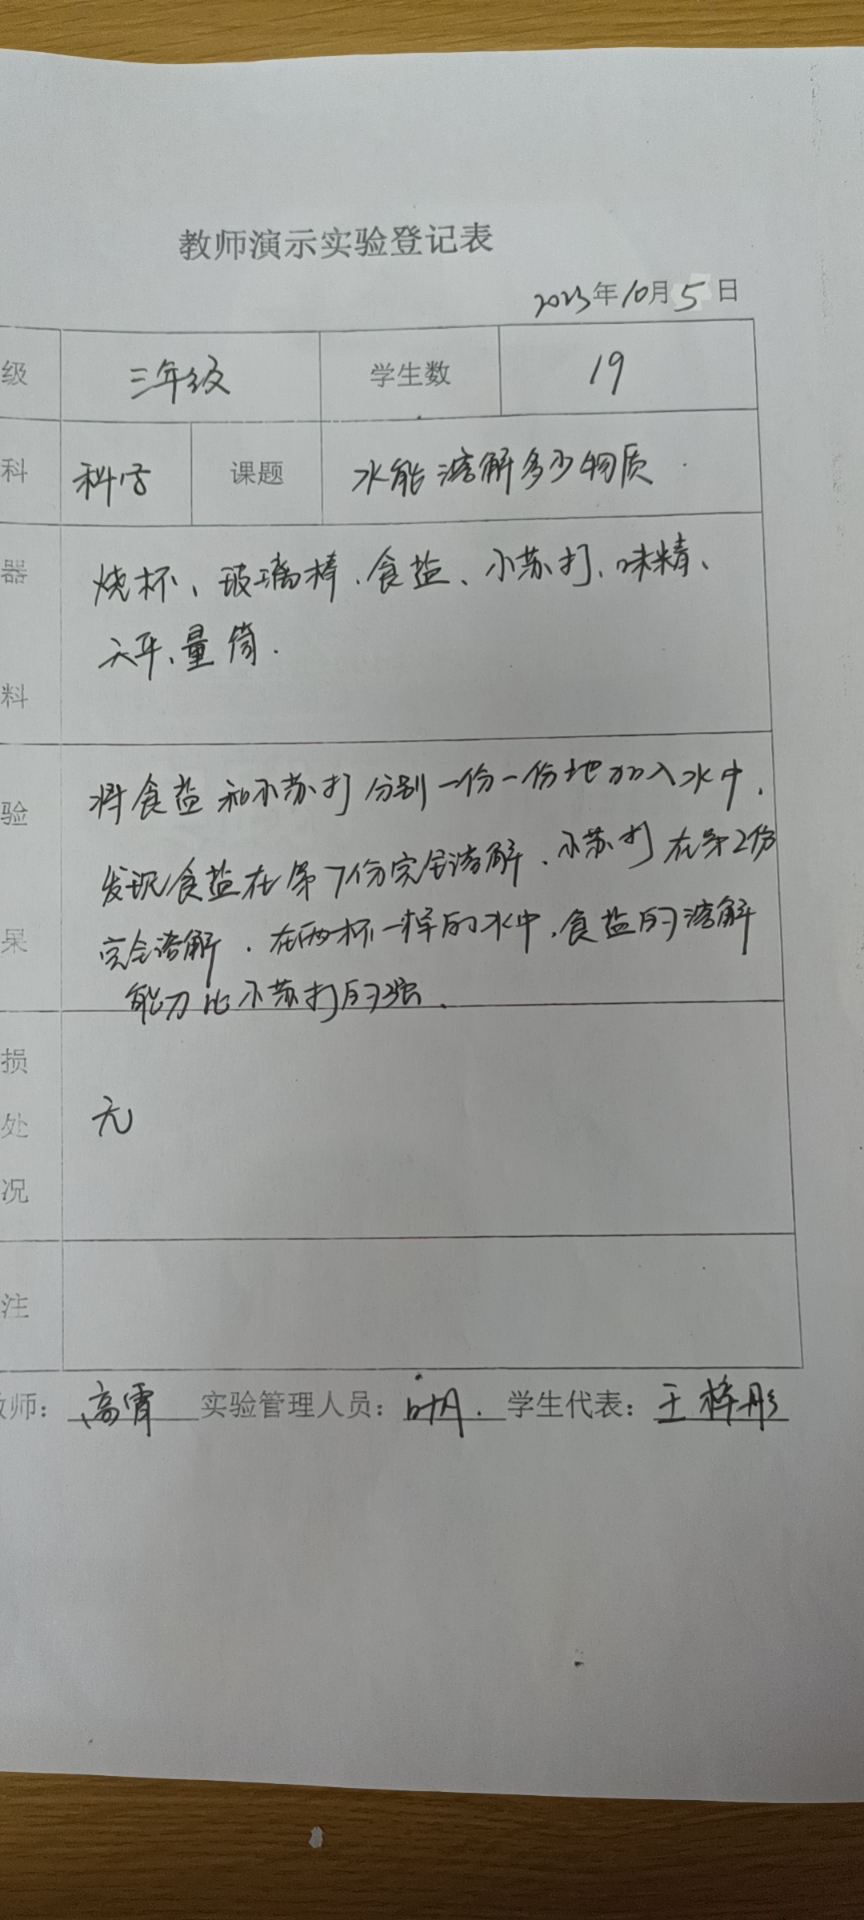 教师演示实验登记表
2023年10月5日
级 三年级 学生数 19
科 科学 课题 水能溶解多少物质
器 烧杯、玻璃棒、食盐、小苏打、味精、
料 天平、量筒.
验 将食盐和小苏打分别一份一份地加入水中,
发现食盐在第7份完全溶解、小苏打在第2份
果 完全溶解.在两杯一样的水中,食盐的溶解
能力比小苏打的强.
损
处 无
况
注
教师: 高霄 实验管理人员: 学生代表: 王梓彤